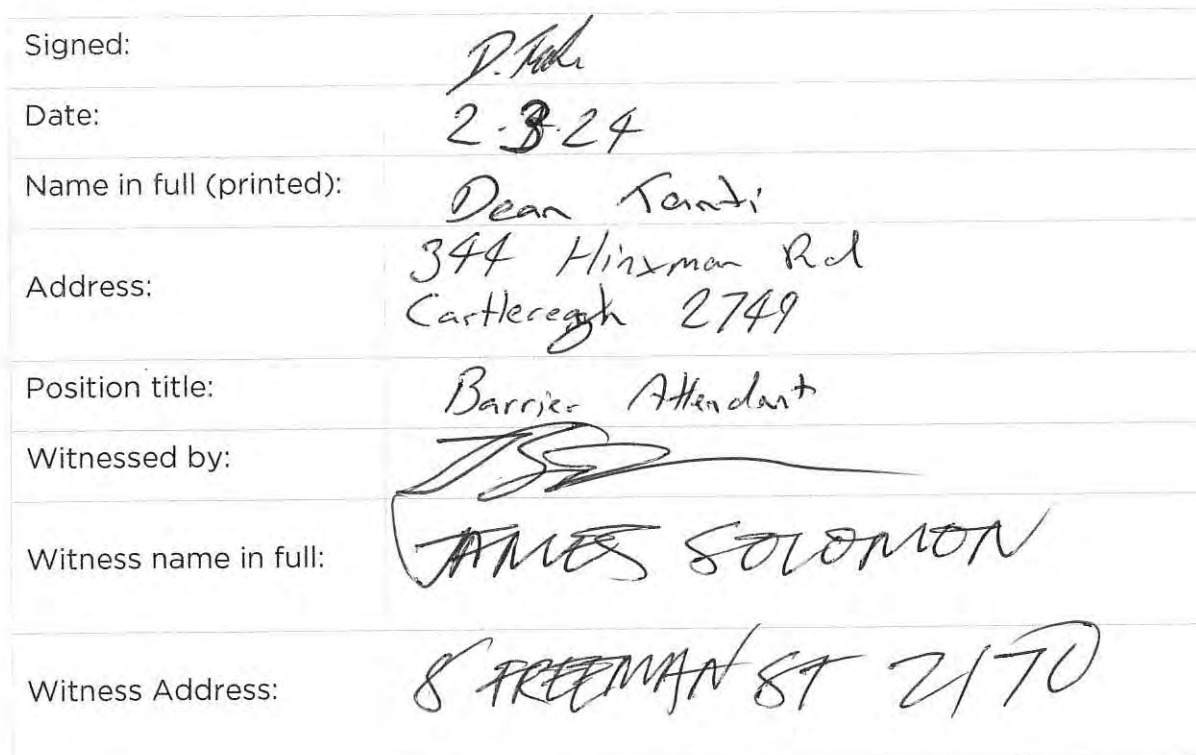 Signed:
Date: 2.3.24
Name in full (printed): Dean Tanti
Address: 344 Hinxman Rd
Castlereagh 2749
Position title: Barrier Attendant
Witnessed by:
Witness name in full: JAMES SOLOMON
Witness Address: 8 FREEMAN ST 2170